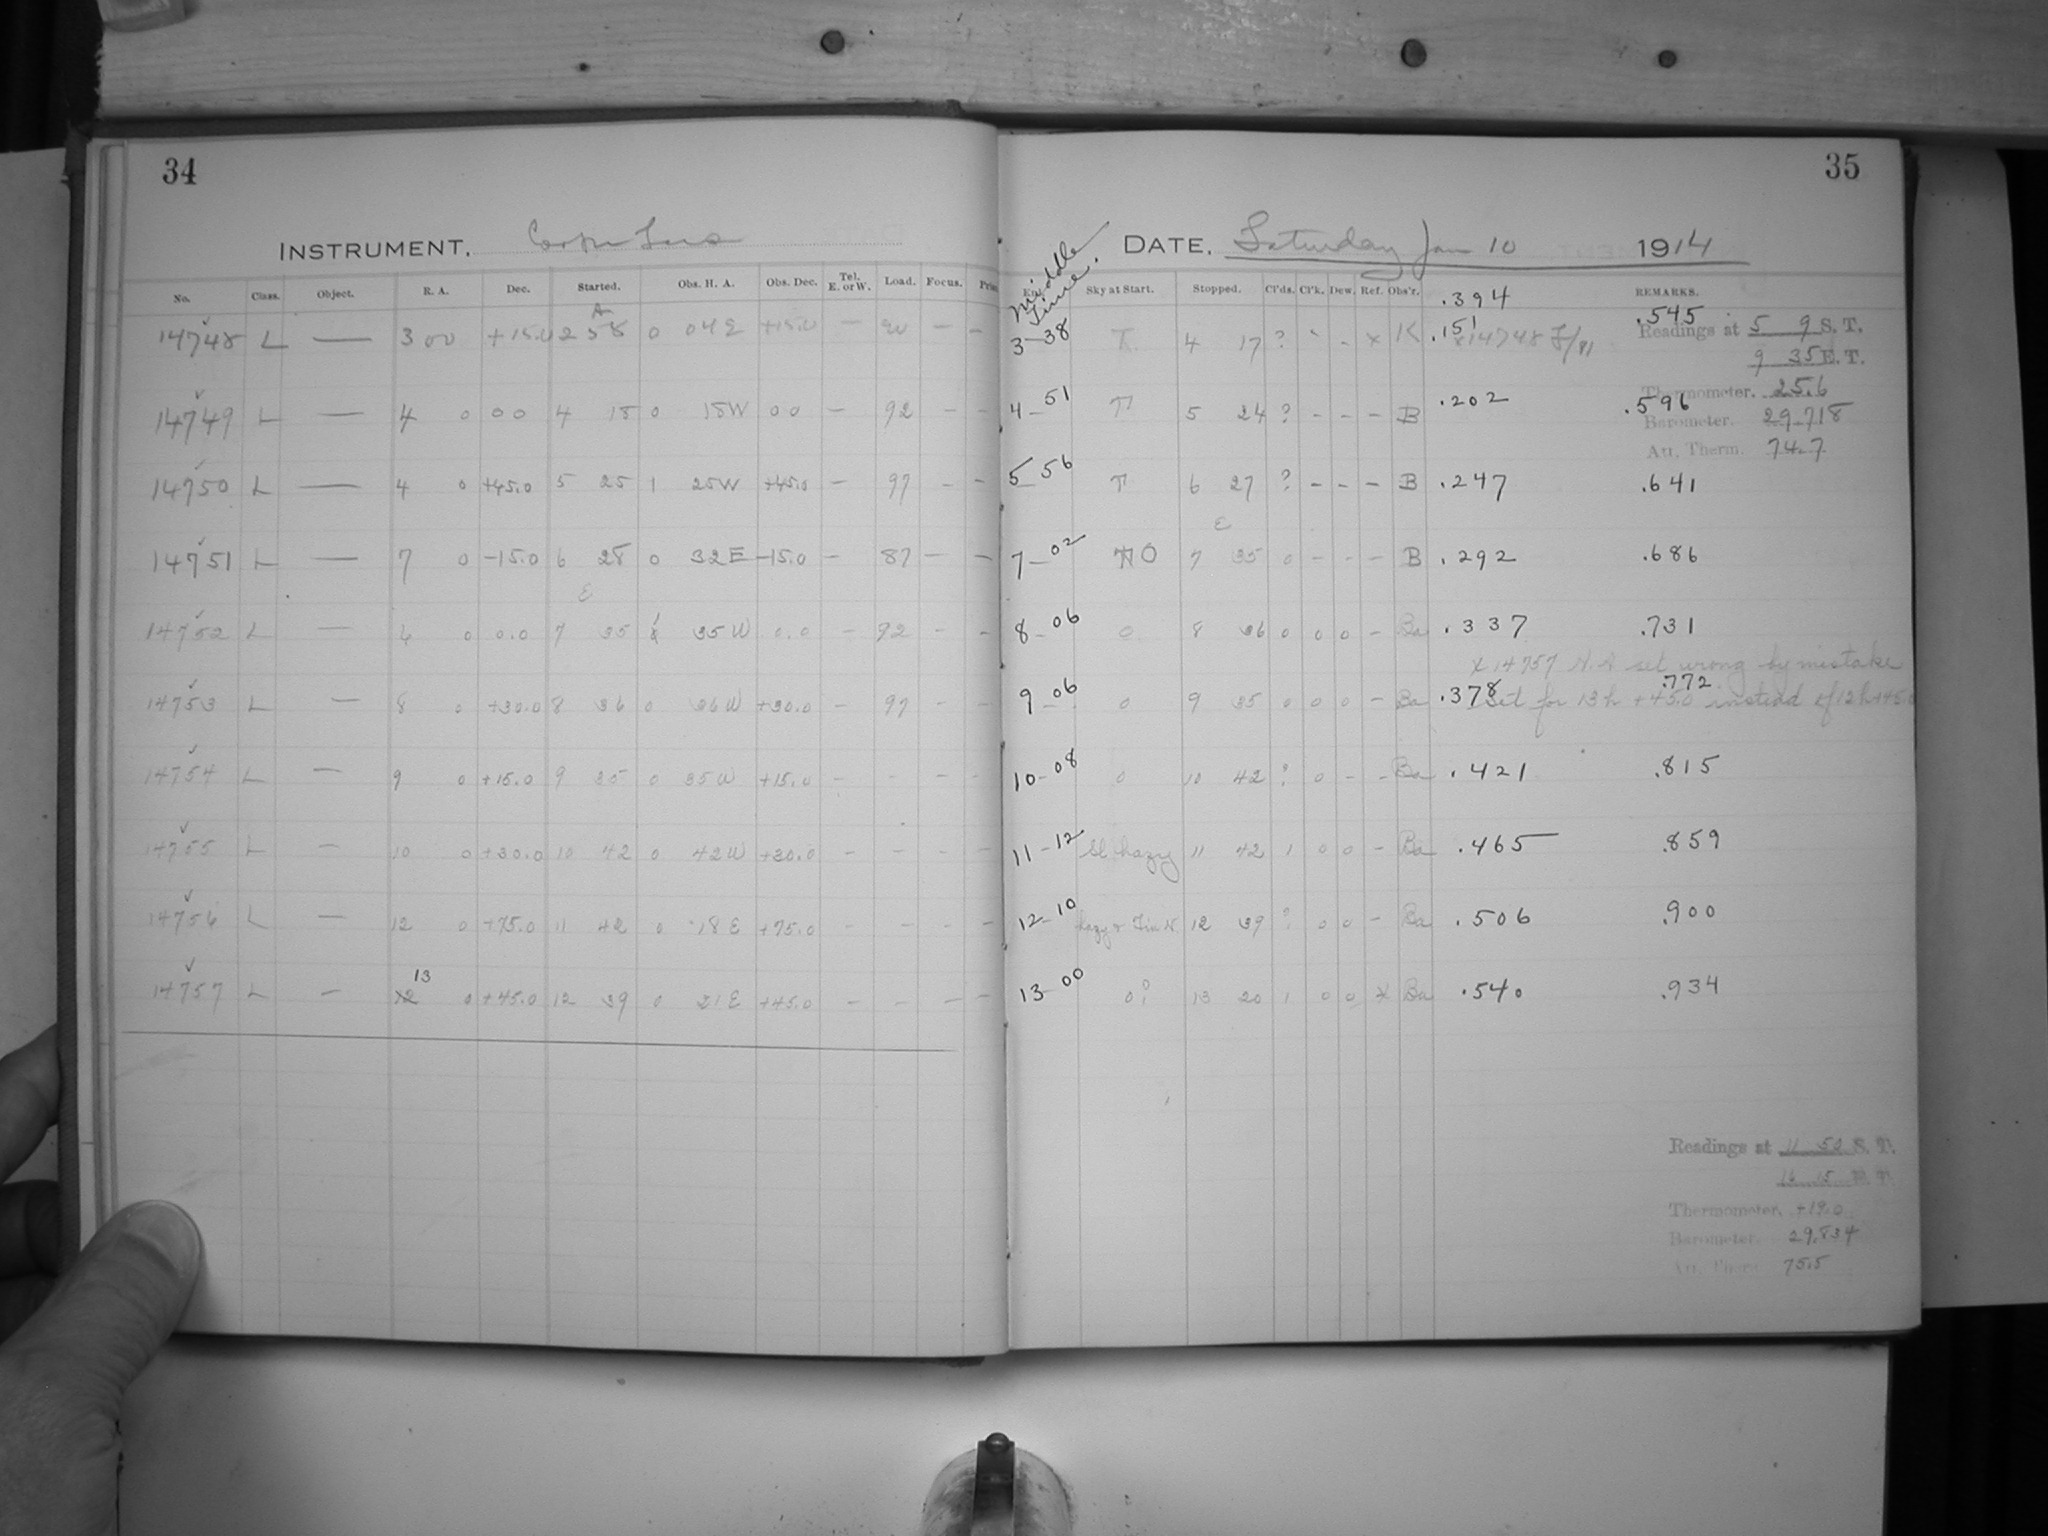 34
35
INSTRUMENT. Cooke Lens
DATE. Saturday Jan 10 1914
No. Class. Object. R. A. Dec. Started. Obs. H. A. Obs. Dec. Tel. E. or W. Load. Focus.
Middle Time. Sky at Start. Stopped. Cl'ds. Cl'k. Dew. Ref. Obs'r. .394 REMARKS.
14748 L — 3 00 +15.0 2 58 0 04 E +15.0 — — —
3-38 4 17 ? - x K .151 x14748 .545 Readings at 5 9 S. T.
9 35 E. T.
14749 L — 4 0 0 0 4 18 0 18 W 0 0 — 92 — —
4-51 T 5 24 ? - - - B .202 .596
Thermometer. 25.6
Barometer. 29.718
Att. Therm. 74.7
14750 L — 4 0 +45.0 5 25 1 25 W +45.0 — 97 - -
5 56 T 6 27 ? - - - B .247 .641
E
14751 L — 7 0 -15.0 6 28 0 32 E -15.0 — 87 — —
7-02 O 7 35 0 - - - B .292 .686
E
14752 L — 6 0 0.0 7 35 1 35 W 0.0 — 92 - -
8-06 0 8 36 0 0 0 - Ba .337 .731
x 14757 H. A set wrong by mistake
14753 L — 8 0 +30.0 8 36 0 36 W +30.0 - 97 - -
9-06 0 9 35 0 0 0 - Ba .378 .772 set for 13h +45.0 instead of 12h +45.0
14754 L — 9 0 +15.0 9 35 0 35 W +15.0 - - - -
10-08 0 10 42 ? 0 - - Ba .421 .815
14755 L — 10 0 +30.0 10 42 0 42 W +30.0 - - - -
11-12 Sl hazy 11 42 1 0 0 - Ba .465 .859
14756 L — 12 0 +75.0 11 42 0 18 E +75.0 - - - -
12-10 hazy 12 39 ? 0 0 - Ba .506 .900
13
14757 L — 12 0 +45.0 12 39 0 21 E +45.0 - - - -
13-00 0? 13 20 1 0 0 x Ba .540 .934
Readings at 11 52 S. T.
16 15 E. T.
Thermometer. +19.0
Barometer. 29.834
Att. Therm. 75.5